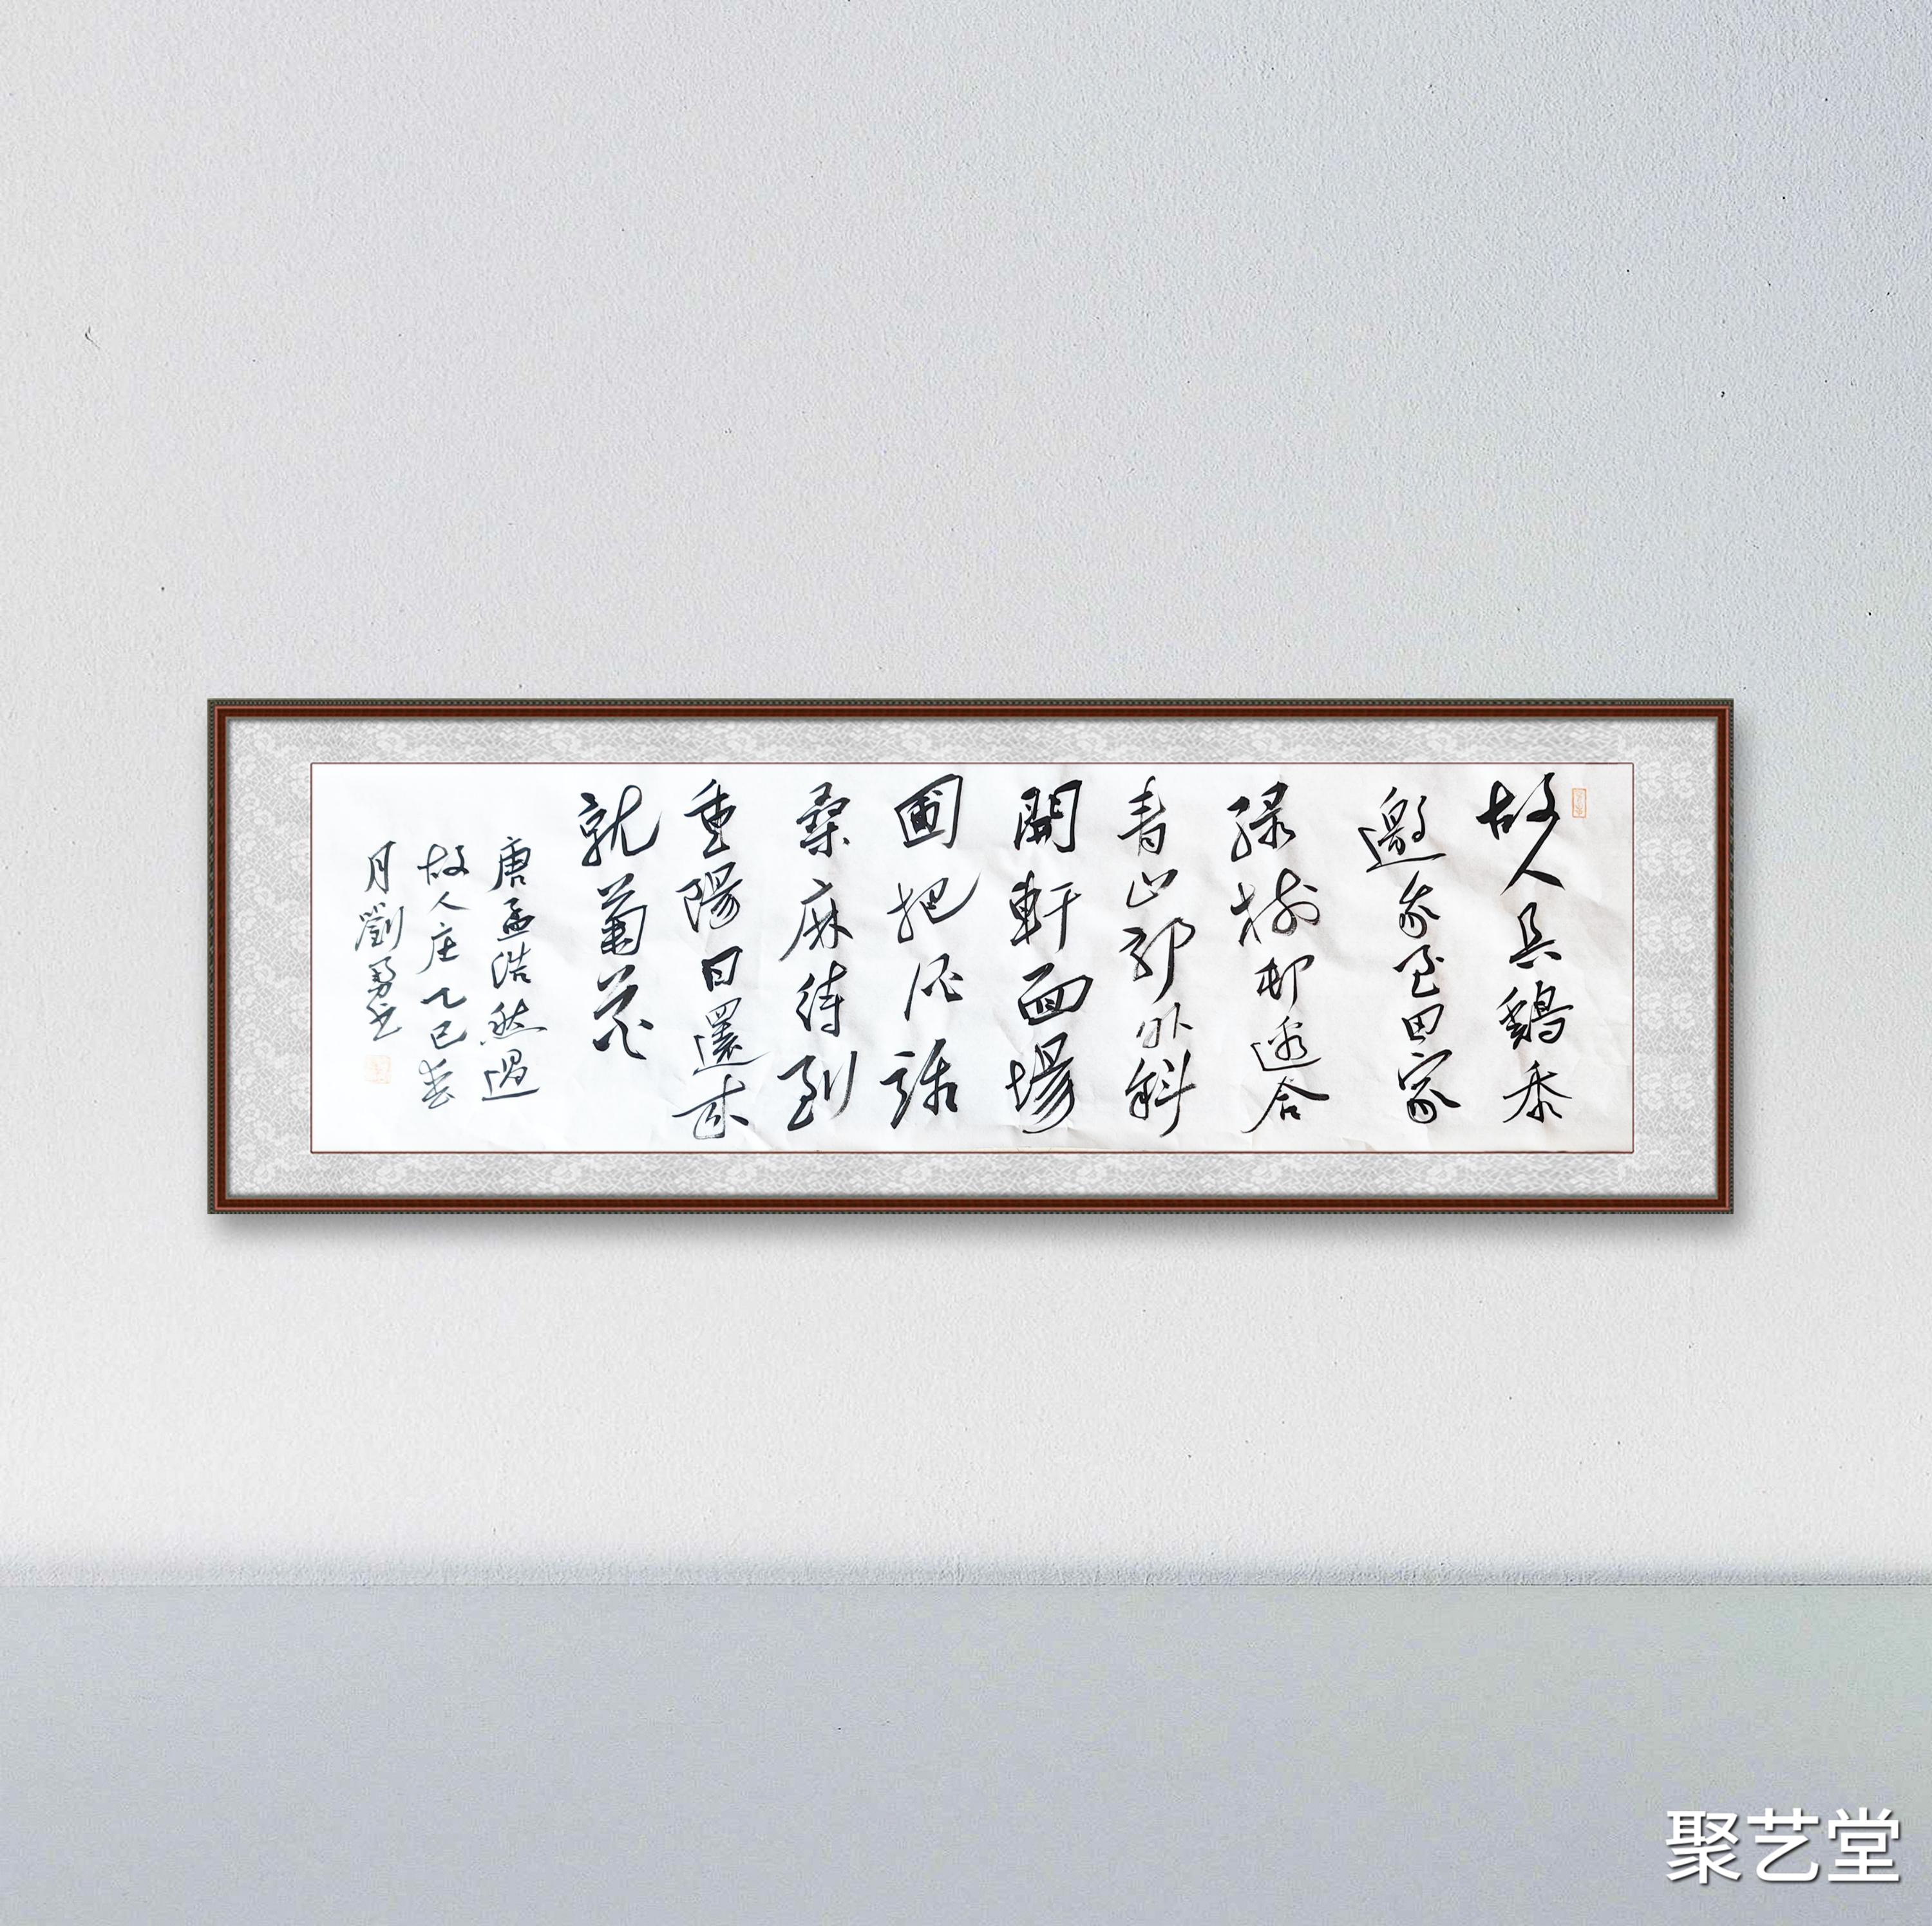 故人具鷄黍
邀我至田家
緑樹邨邊合
青山郭外斜
開軒面場
圃把酒話
桑麻待到
重陽日還来
就菊花
唐孟浩然過
故人庄乙巳
月劉勇书
聚艺堂